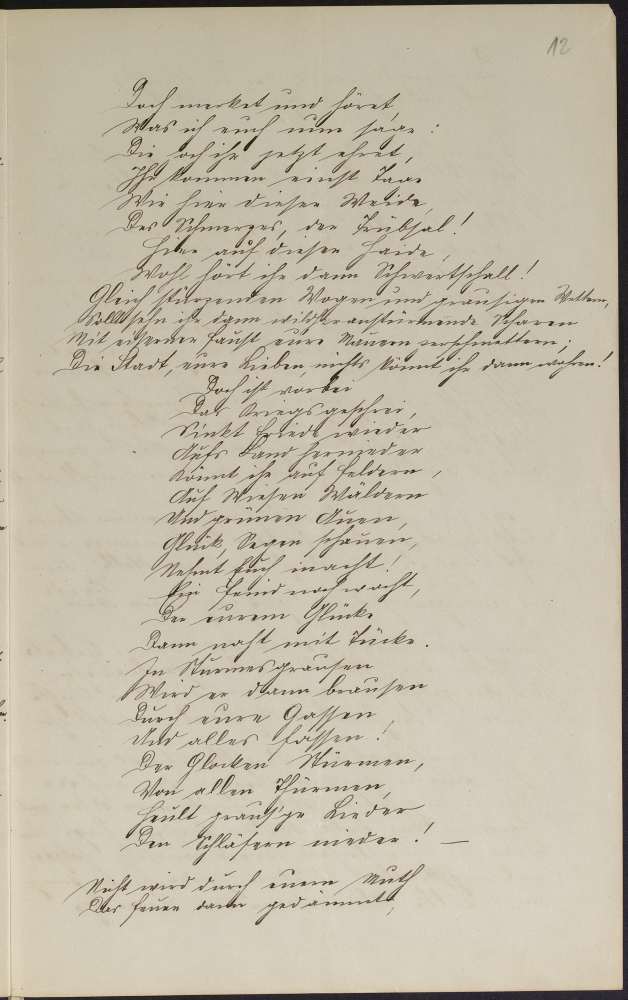 12
Doch merket und höret,
Was ich euch nun sage:
Die ihr jetzt ehret,
Ihr kommen einst Tage
Wie hier dieser Weide,
Des Schmerzes, der Trübsal!
Hier auf dieser Haide,
Wohl hört ihr dann Schwertschall!
Gleich stürzenden Wogen und grausigen Wettern,
Sollt sehn ihr dann wildheranstürmende Scharen
Mit eiserner Faust eure Mauern zerschmettern;
Die Stadt, eure Lieben, nichts könnt ihr dann wahren!
Doch ist vorbei
Das Kriegsgeschrei,
Sinkt Friede wieder
Aufs Land hernieder
Könnt ihr auf Feldern,
Auf Wiesen Wäldern
Und grünen Auen,
Glück, Segen schauen,
Nehmt Euch inacht!
Ein Feind noch wacht,
Der eurem Glücke
Dann naht mit Tücke.
In Sturmesgrausen
Wird er dann brausen
Durch eure Gassen
Und alles fassen!
Der Glocken Stürmen,
Von allen Thürmen,
Heult graus'ge Lieder
Den Schläfern nieder! —
Nicht wird durch euern Muth
Das Feuer dann gedämmt,